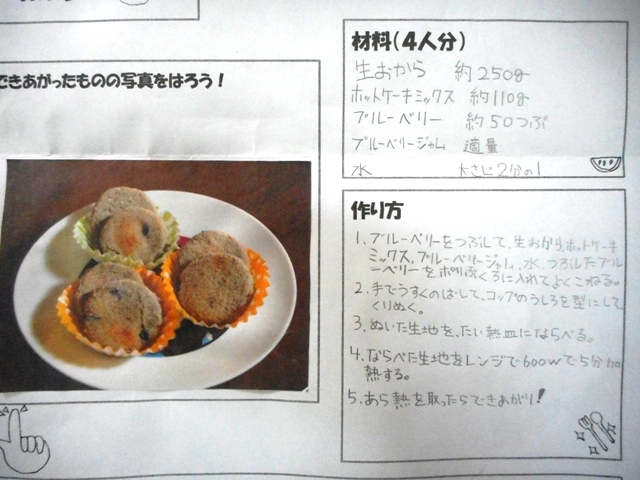 できあがったものの写真をはろう！
材料（４人分）
生おから 約250g
ホットケーキミックス 約110g
ブルーベリー 約50つぶ
ブルーベリージャム 適量
水 大さじ2分の1
作り方
1. ブルーベリーをつぶして、生おから、ホットケーキ
ミックス、ブルーベリージャム、水、つぶしたブル
ーベリーをポリぶくろに入れてよくこねる。
2. 手でうすくのばして、コップのうしろを型にして
くりぬく。
3. ぬいた生地を、たい熱皿にならべる。
4. ならべた生地をレンジで600wで5分加
熱する。
5. あら熱を取ったらできあがり！